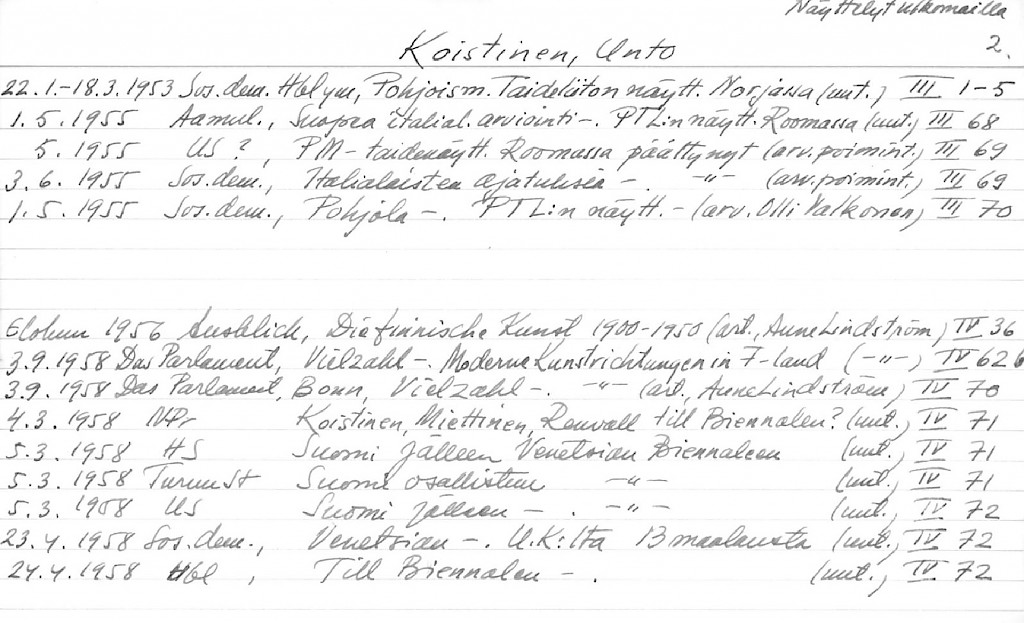 Näyttelyt ulkomailla
2.
Koistinen, Unto
22.1.-18.3.1953 Sos.dem. Hbl ym, Pohjoism. Taideliiton näytt. Norjassa (uut.) III 1-5
1.5.1955 Aamul., Suopea italial. arviointi -. PTL:n näytt. Roomassa (uut.) III 68
5.1955 US ?, PM-taidenäytt. Roomassa päättynyt (arv.poimint.) III 69
3.6.1955 Sos.dem., Italialaisten ajatuksia -. -"- (arv.poimint.) III 69
1.5.1955 Sos.dem., Pohjola -. PTL:n näytt. - (arv. Olli Valkonen) III 70
Elokuu 1956 Ausblick, Die finnische Kunst 1900-1950 (art., Aune Lindström) IV 36
3.9.1958 Das Parlament, Vielzahl -. Moderne Kunstrichtungen in F-land (-"-) IV 62
3.9.1958 Das Parlament, Bonn, Vielzahl -. -"- (art., Aune Lindström) IV 70
4.3.1958 NPr Koistinen, Miettinen, Renvall till Biennalen? (uut.) IV 71
5.3.1958 HS Suomi jälleen Venetsian Biennaleen (uut.) IV 71
5.3.1958 Turun St Suomi osallistuu -"- (uut.) IV 71
5.3.1958 US Suomi jälleen -. -"- (uut.) IV 72
23.4.1958 Sos.dem., Venetsian -. U.K:lta 13 maalausta (uut.) IV 72
24.4.1958 Hbl, Till Biennalen -. (uut.) IV 72